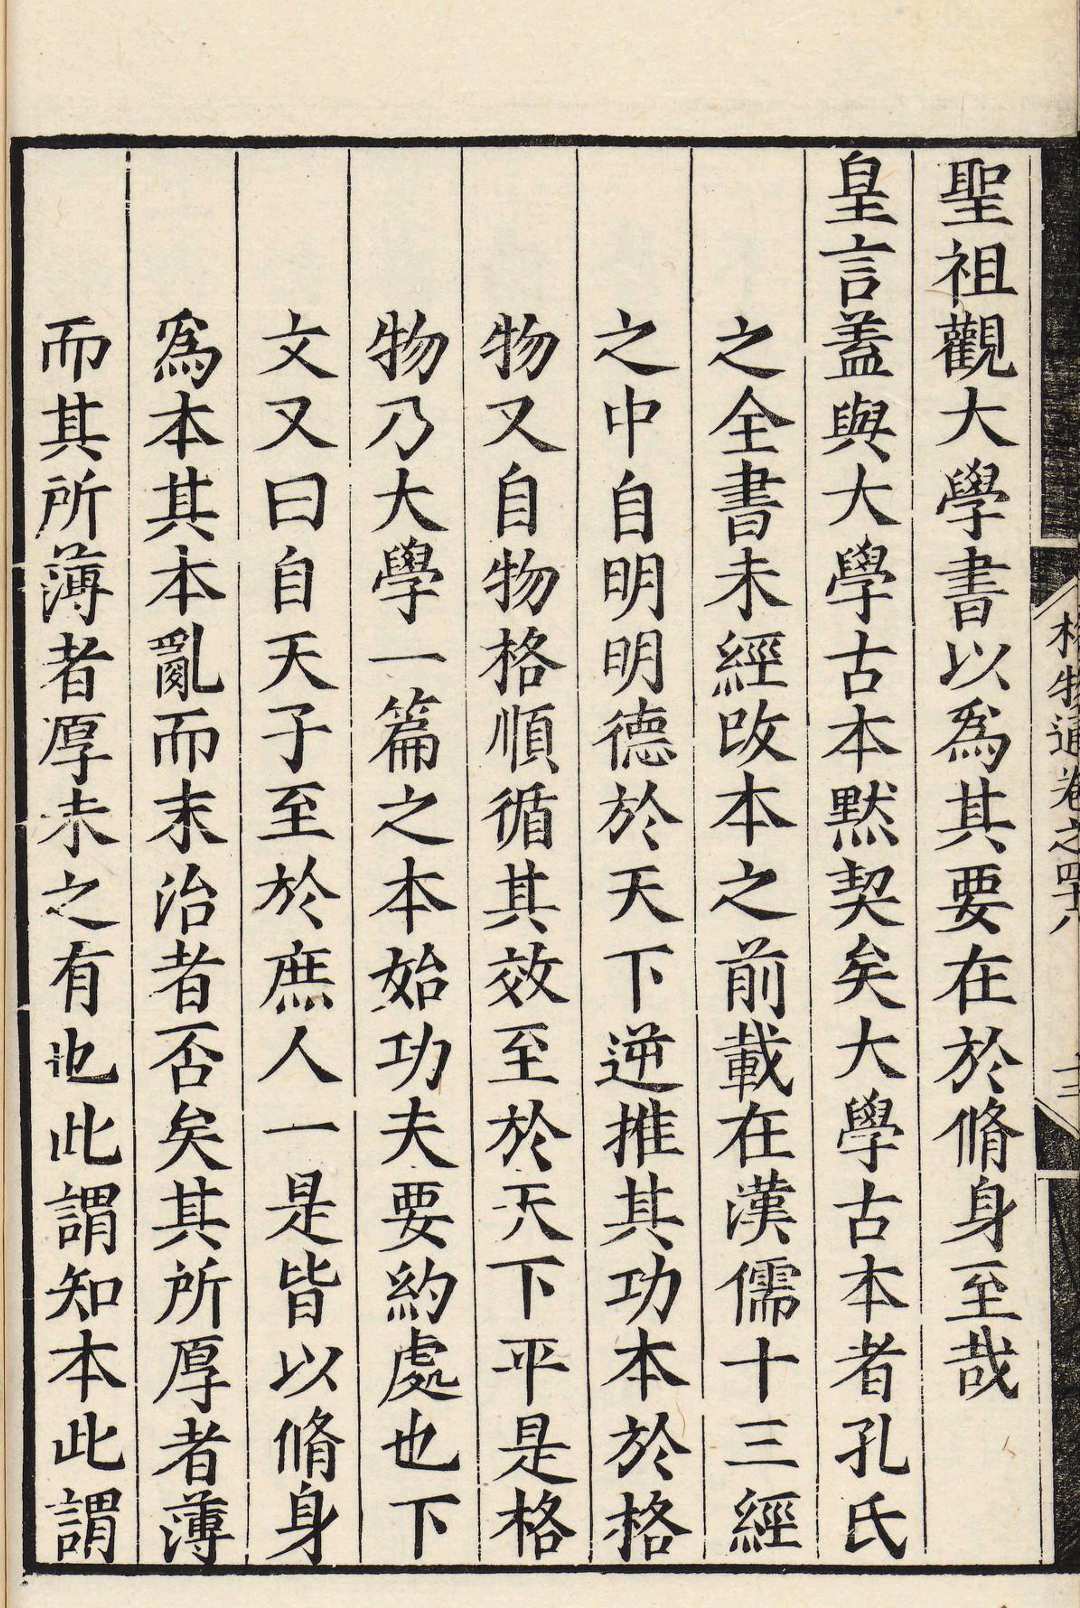 聖祖觀大學書以爲其要在於脩身至哉
皇言蓋與大學古本默契矣大學古本者孔氏
之全書未經改本之前載在漢儒十三經
之中自明明德於天下逆推其功本於格
物又自物格順循其效至於天下平是格
物乃大學一篇之本始功夫要約處也下
文又曰自天子至於庶人一是皆以脩身
爲本其本亂而末治者否矣其所厚者薄
而其所薄者厚未之有也此謂知本此謂
格物通卷之四十八
十二